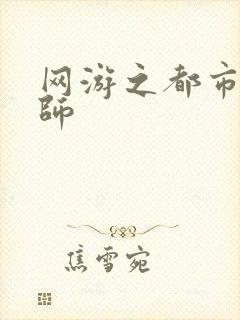 网游之都市
师
焦雪宛